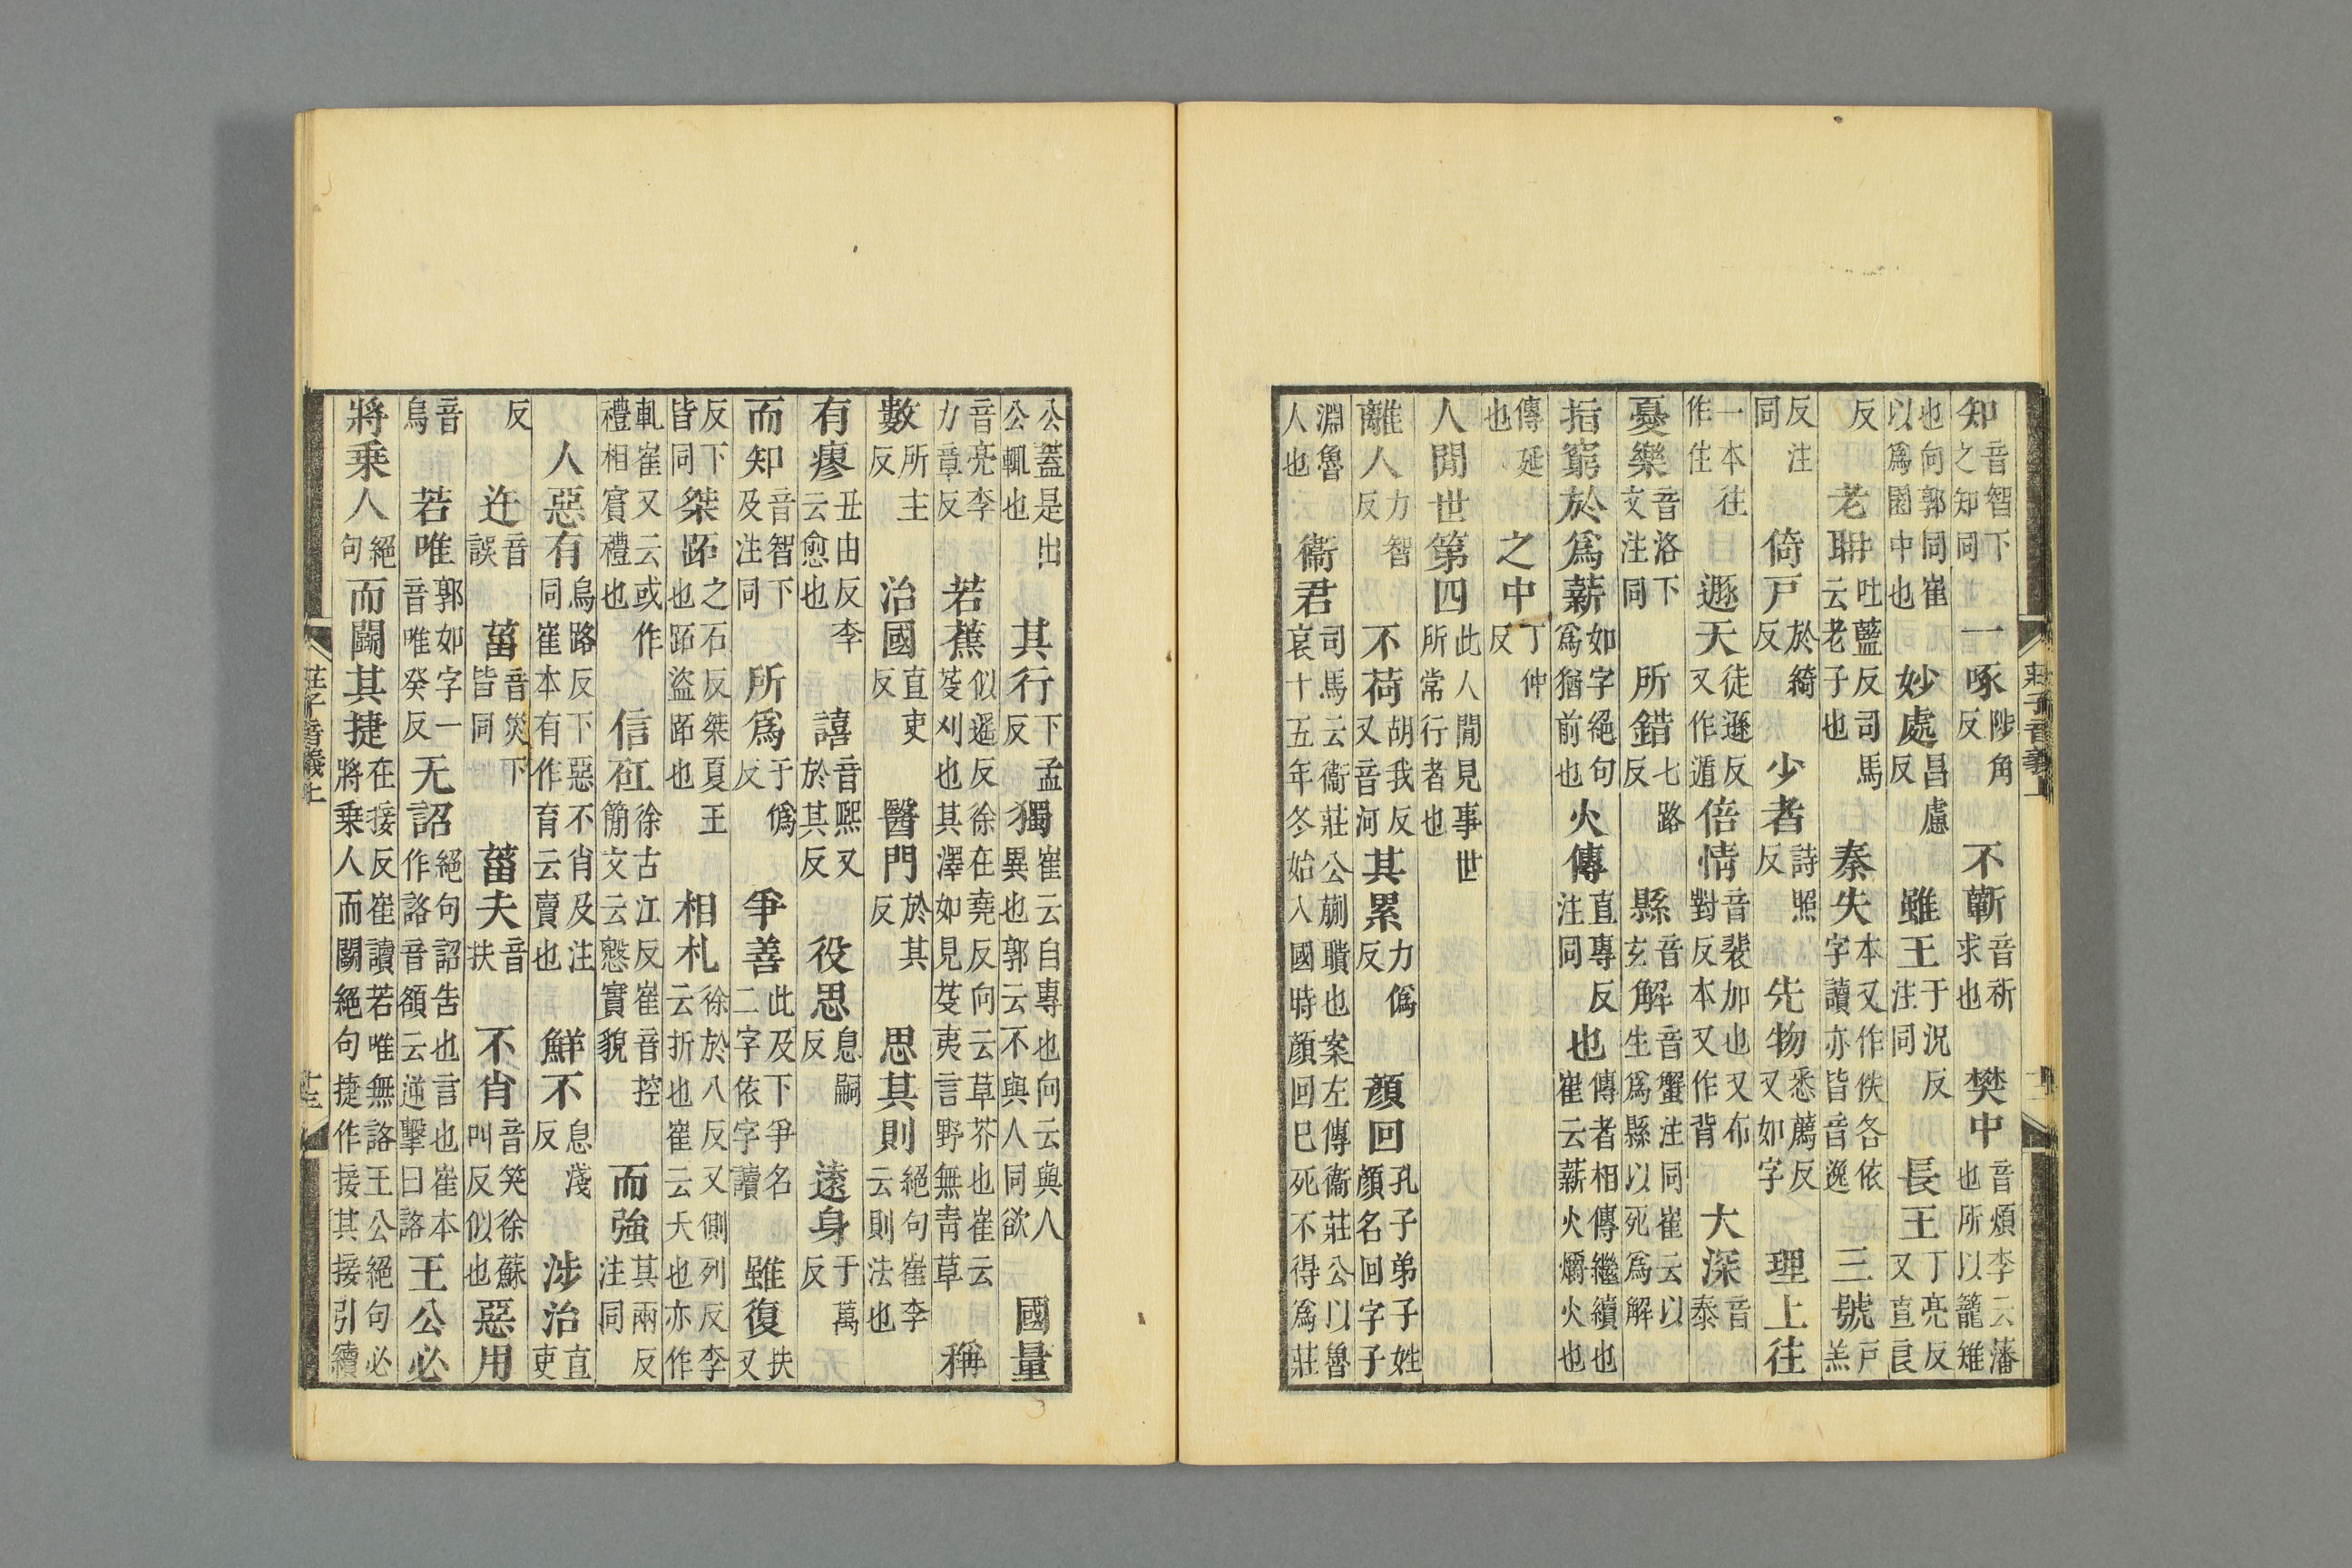 莊子音義上
知音智下之知同一啄陟角反不蘄音祈求也樊中音煩李云藩也所以籠雉
也向郭同崔以爲園中也妙處昌慮反雖王于況反注同長王丁亮反又直良
反老聃吐藍反司馬云老子也秦失本又作佚各依字讀亦皆音逸三號戶羔
反注同倚戸於綺反少者詩照反先物悉薦反又如字理上往
一本往作住遯天徒遜反又作遁倍情音裴加也又布對反本又作背大深音泰
憂樂音洛下文注同所錯七路反縣音玄解音蟹注同崔云以生爲縣以死爲解
指窮於爲薪如字絕句爲猶前也火傳直專反注同也傳者相傳繼續也崔云薪火爝火也
傳延也之中丁仲反
人閒世第四此人閒見事世所常行者也
離人力智反不荷胡我反又音河其累力僞反顏回孔子弟子姓顏名回字子
淵魯人也衞君司馬云衞莊公蒯聵也案左傳衞莊公以魯哀十五年冬始入國時顏回已死不得爲莊
公蓋是出公輒也其行下孟反獨崔云自專也向云與人異也郭云不與人同欲國量
音亮李力章反若蕉似遙反徐在堯反向云草芥也崔云芟刈也其澤如見芟夷言野無青草稱
數所主反治國直吏反醫門於其反思其則絕句崔李云則法也
有瘳丑由反李云愈也譆音熙又於其反役思息嗣反遠身于萬反
而知音智下及注同所爲于僞反爭善此及下爭名二字依字讀雖復扶又
反下皆同桀跖之石反桀夏王也跖盜跖也相札徐於八反又側列反李云折也崔云夭也亦作
軋崔又云或作禮相賓禮也信矼徐古江反崔音控簡文云慤實貌而強其兩反注同
人惡有烏路反下惡不肖及注同崔本有作育云賣也鮮不息淺反涉治直吏
反迕音誤菑音災下皆同菑夫音扶不肖音笑徐蘇叫反似也惡用
音烏若唯郭如字一音唯癸反无詔絕句詔告也言也崔本作詻音額云逆擊曰詻王公必
將乗人絕句而鬭其捷在接反崔讀若唯無詻王公絕句必將乗人而鬭絕句捷作接其接引續
莊子音義上